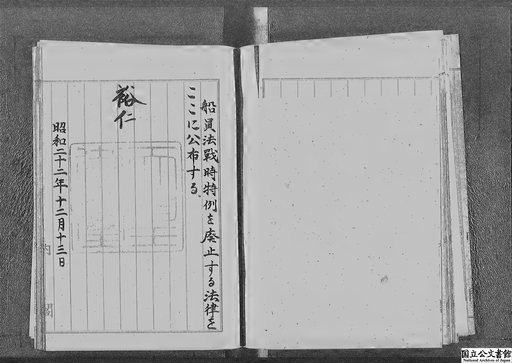 船員法戰時特例を廃止する法律を
ここに公布する
裕仁
昭和二十二年十二月十三日
内閣
国立公文書館
National Archives of Japan